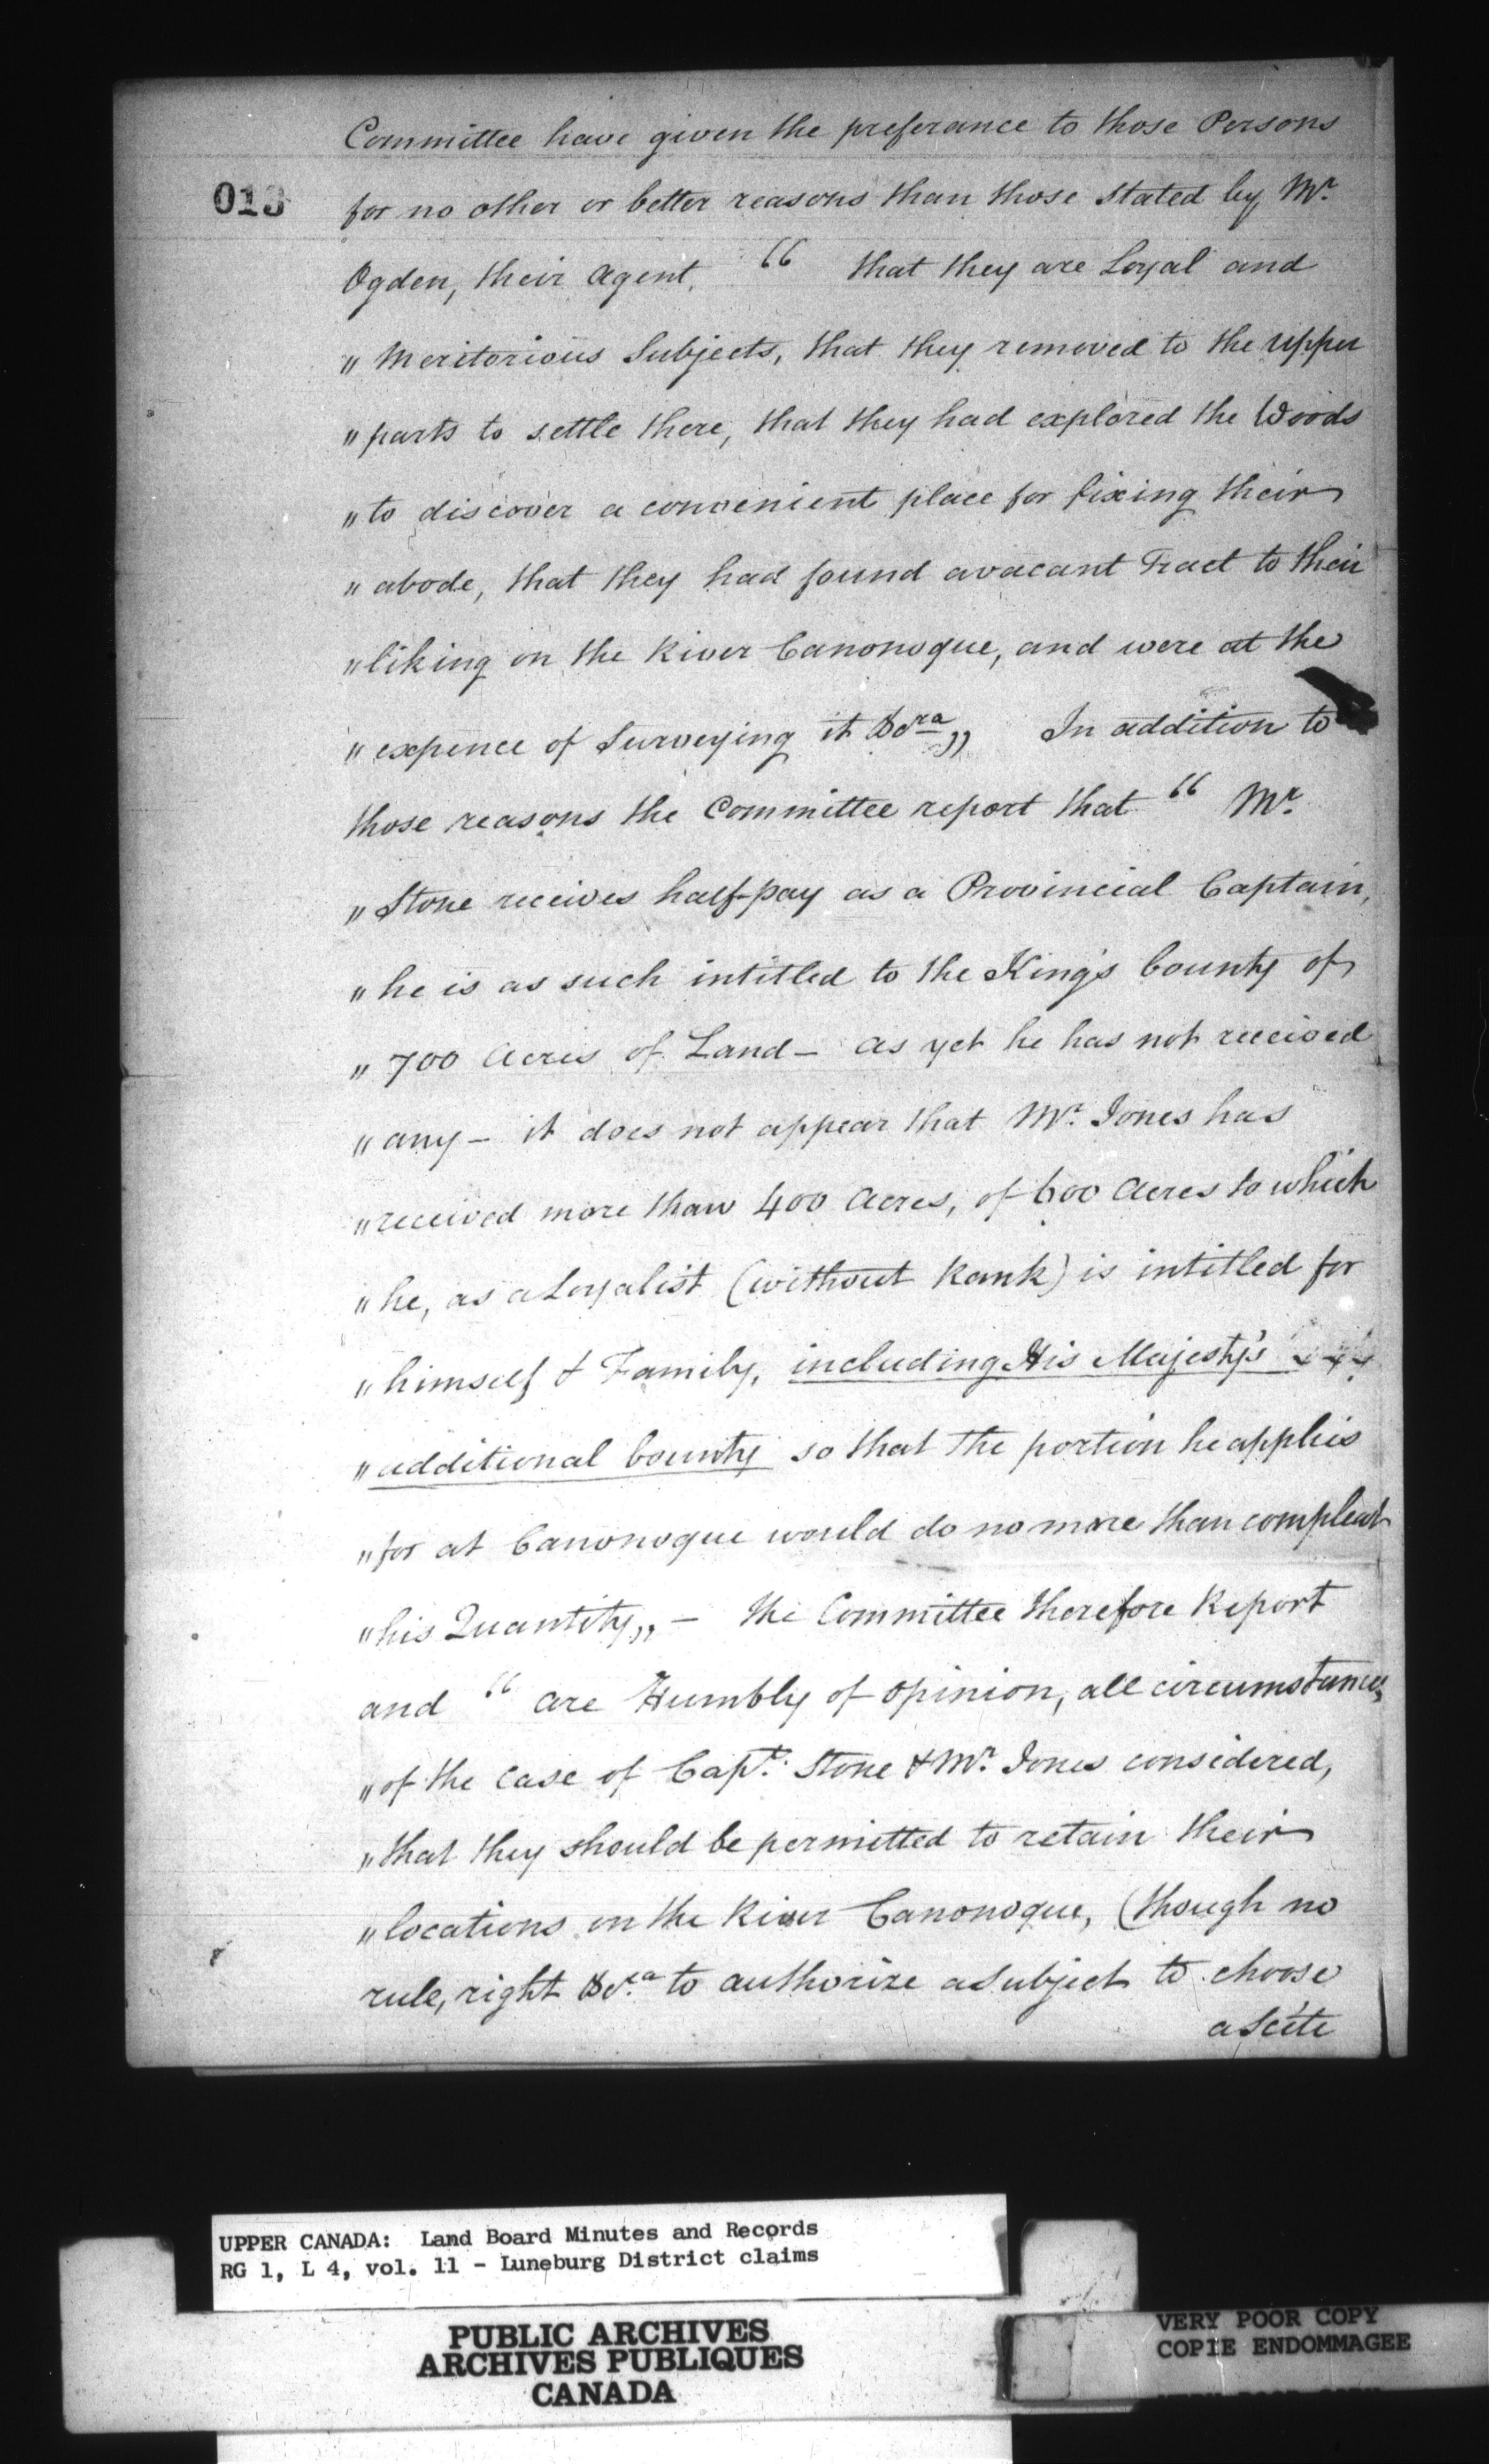 Committee have given the preferance to those Persons
013
for no other or better reasons than those stated by Mr.
Ogden, their Agent, “ that they are Loyal and
„ Meritorious Subjects, that they removed to the upper
„ parts to settle there, that they had explored the Woods
„ to discover a convenient place for fixing their
„ abode, that they had found avacant Tract to their
„ liking on the River Canonoque, and were at the
„ expence of Surveying it &cra „ In addition to
those reasons the Committee report that “ Mr.
„ Stone receives half-pay as a Provincial Captain,
„ he is as such intitled to the King's bounty of
„ 700 Acres of Land – as yet he has not received
„ any – it does not appear that Mr. Jones has
„ received more than 400 Acres, of 600 Acres to which
„ he, as a Loyalist (without Rank) is intitled for
„ himself & Family, including His Majesty's
„ additional bounty so that the portion he applies
„ for at Canonoque would do no more than compleat
„ his Quantity „ – the Committee therefore Report
and “ are Humbly of opinion, all circumstances
„ of the Case of Capt. Stone & Mr. Jones considered,
„ that they should be permitted to retain their
„ locations on the River Canonoque, (though no
rule, right &ca to authorize a Subject to choose
a Scite
UPPER CANADA: Land Board Minutes and Records
RG 1, L 4, vol. 11 - Luneburg District claims
PUBLIC ARCHIVES
ARCHIVES PUBLIQUES
CANADA
VERY POOR COPY
COPIE ENDOMMAGEE